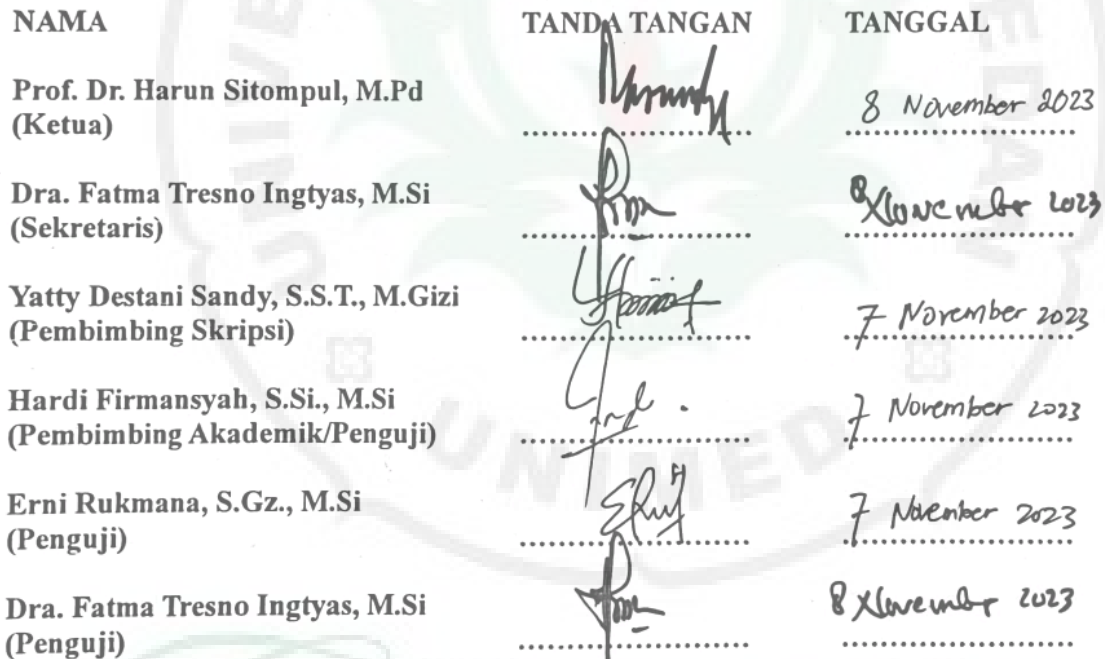 NAMA TANDA TANGAN TANGGAL
Prof. Dr. Harun Sitompul, M.Pd
(Ketua) 8 November 2023
Dra. Fatma Tresno Ingtyas, M.Si
(Sekretaris) 8 November 2023
Yatty Destani Sandy, S.S.T., M.Gizi
(Pembimbing Skripsi) 7 November 2023
Hardi Firmansyah, S.Si., M.Si
(Pembimbing Akademik/Penguji) 7 November 2023
Erni Rukmana, S.Gz., M.Si
(Penguji) 7 November 2023
Dra. Fatma Tresno Ingtyas, M.Si
(Penguji) 8 November 2023
UNIMED